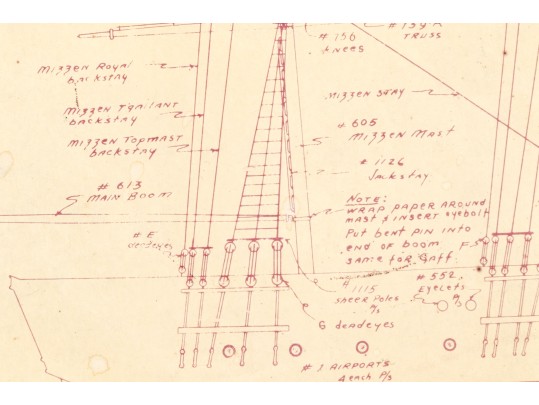 # 734
TRUSS
# 756
KNEES
MIZZEN ROYAL
backstay
MIZZEN STAY
MIZZEN TGALLANT
backstay
# 605
MIZZEN MAST
MIZZEN TOPMAST
backstay
# 1126
Jackstay
# 613
MAIN BOOM
NOTE:
WRAP PAPER AROUND
MAST & INSERT eyebolt
Put bent pin into
END OF BOOM
SAME FOR GAFF.
# E
deadeyes
F
# 1115
sheer Poles
P/S
# 552
EYELETS
P/S
G deadeyes
# J AIRPORTS
4 each P/S